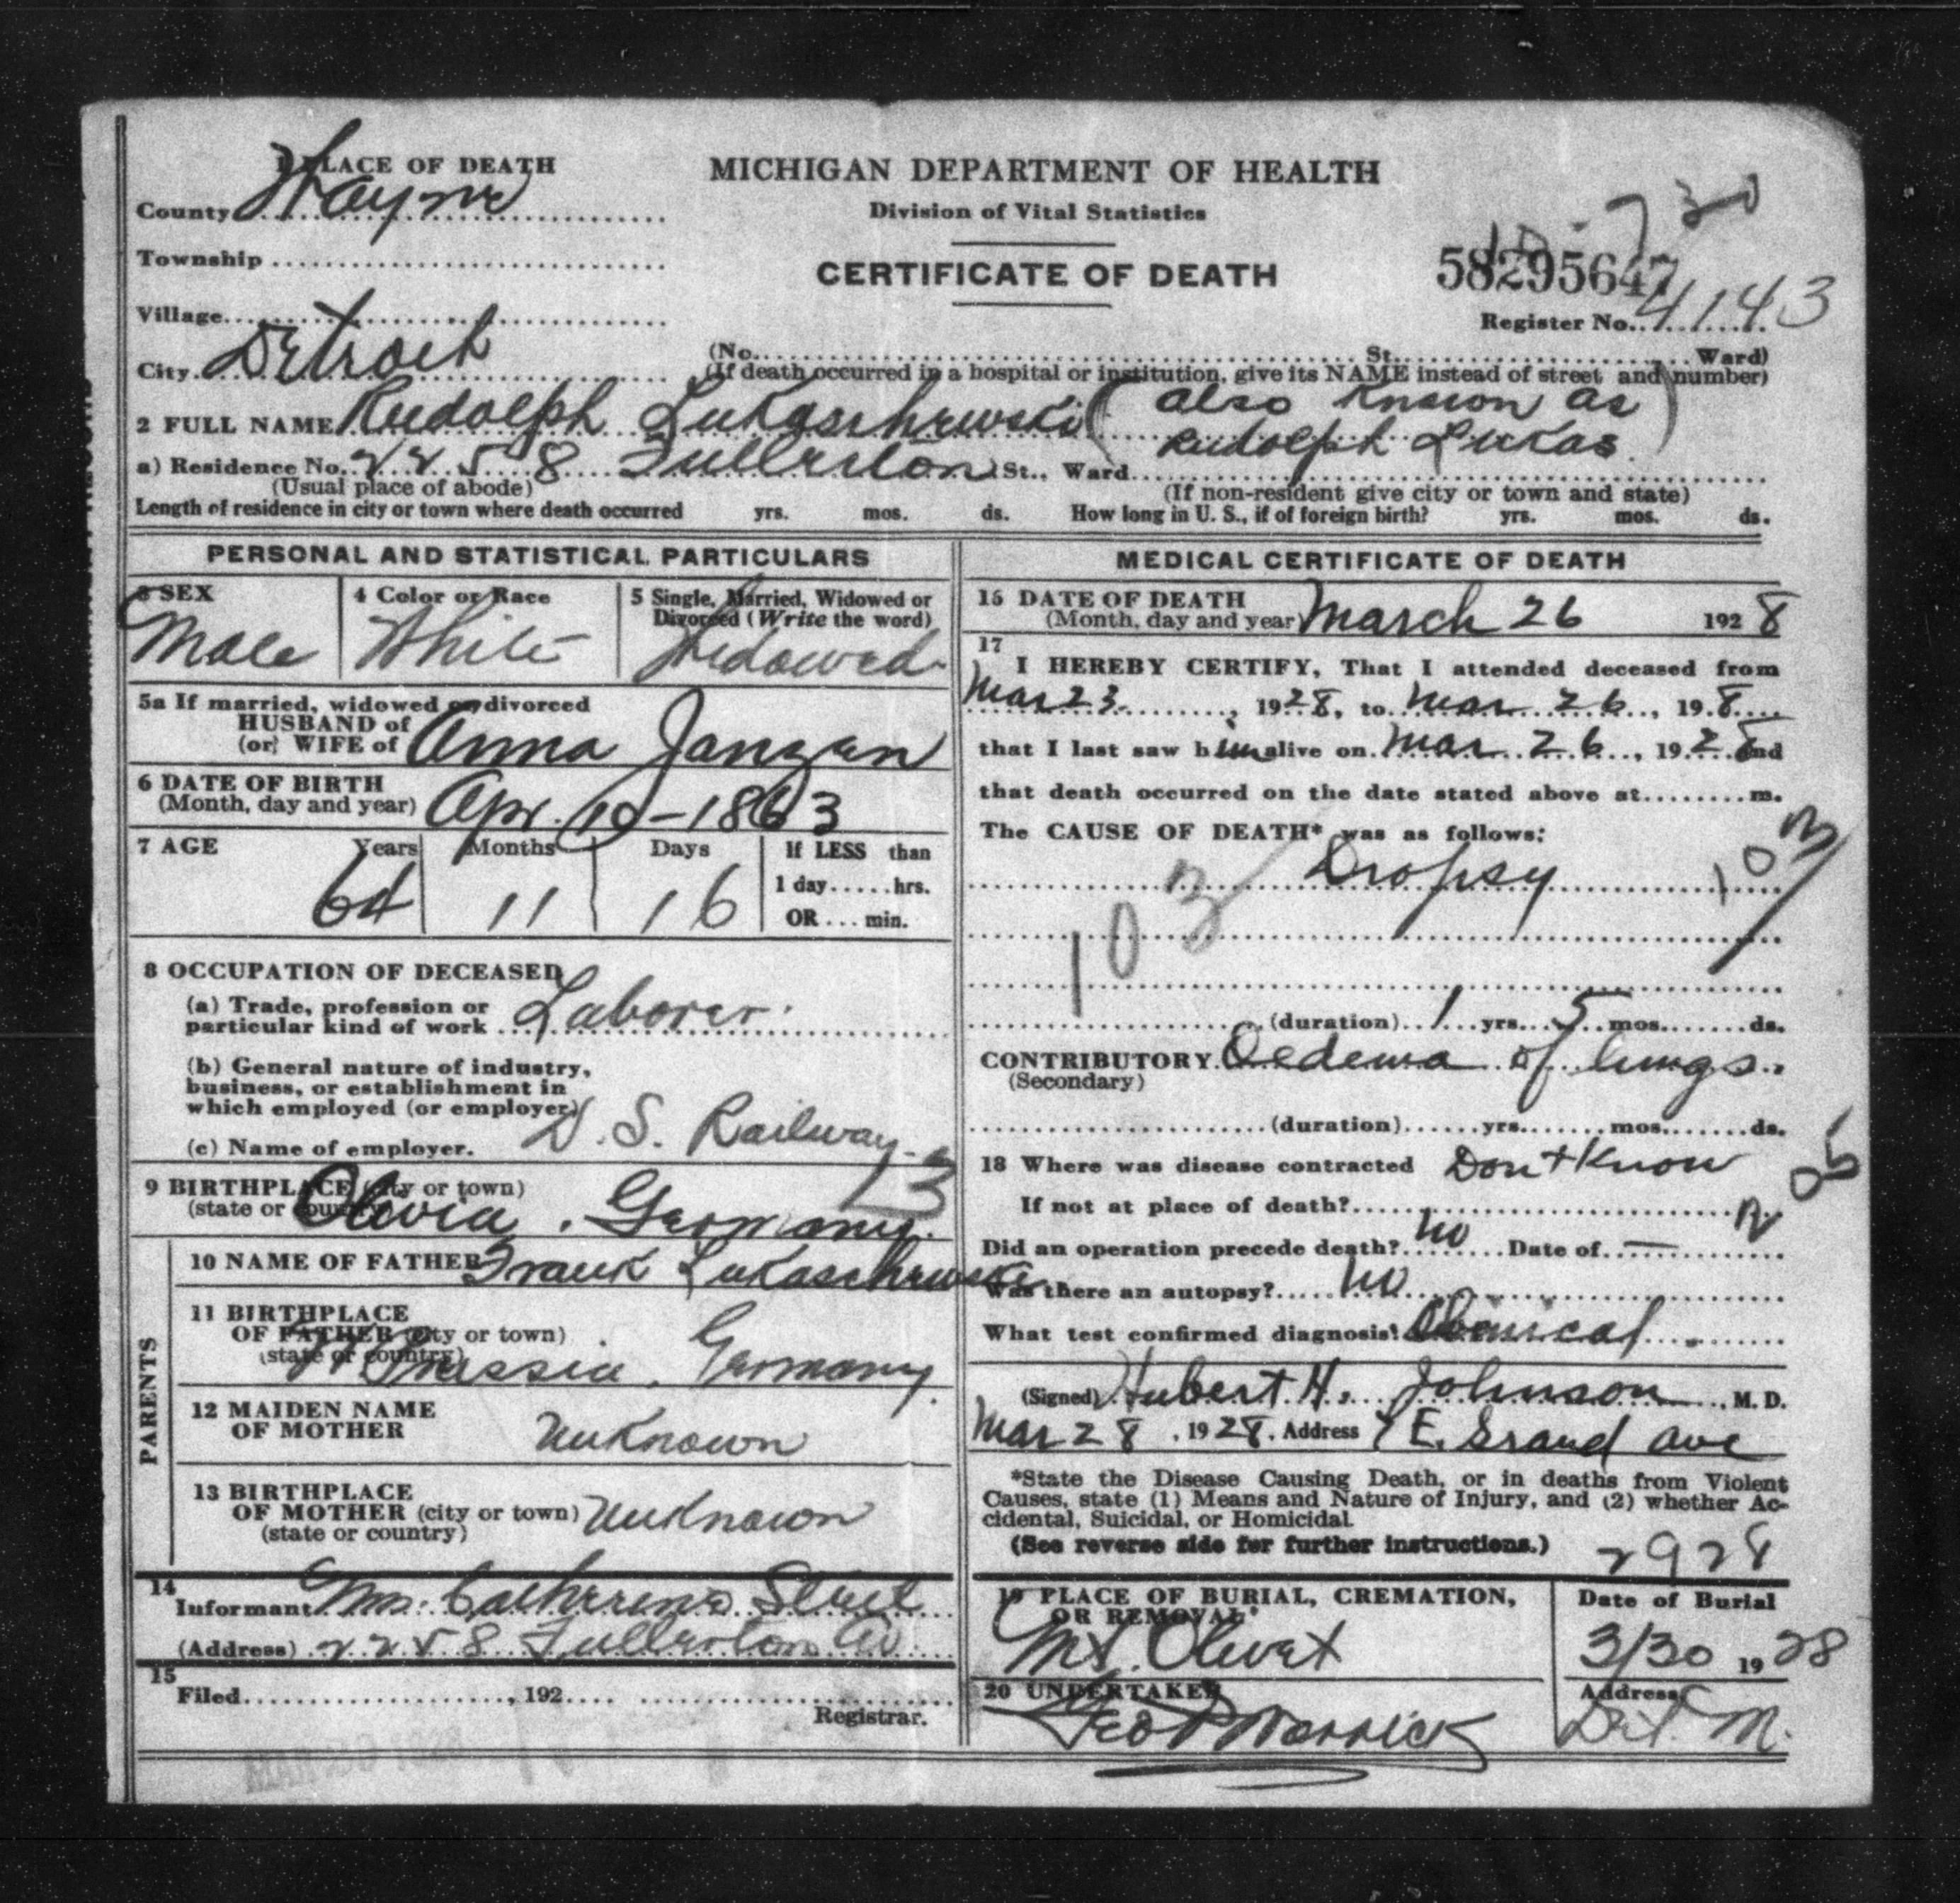 1 PLACE OF DEATH
County Wayne
Township
Village
City Detroit
MICHIGAN DEPARTMENT OF HEALTH
Division of Vital Statistics
CERTIFICATE OF DEATH
58295647
Register No. 4143
(No. St. Ward)
(If death occurred in a hospital or institution, give its NAME instead of street and number)
2 FULL NAME Rudolph Lukaschewski (also known as
Rudolph Lukas)
a) Residence No. 2258 Fullerton St., Ward
(Usual place of abode) (If non-resident give city or town and state)
Length of residence in city or town where death occurred yrs. mos. ds. How long in U. S., if of foreign birth? yrs. mos. ds.
PERSONAL AND STATISTICAL PARTICULARS
3 SEX
Male
4 Color or Race
White
5 Single, Married, Widowed or
Divorced (Write the word)
Widowed
5a If married, widowed or divorced
HUSBAND of
(or) WIFE of Anna Janzen
6 DATE OF BIRTH
(Month, day and year) Apr. 10-1863
7 AGE Years Months Days
64 11 16
If LESS than
1 day.....hrs.
OR....min.
8 OCCUPATION OF DECEASED
(a) Trade, profession or
particular kind of work Laborer
(b) General nature of industry,
business, or establishment in
which employed (or employer)
(c) Name of employer. D. S. Railway
9 BIRTHPLACE (city or town)
(state or country) Olivia, Germany.
PARENTS
10 NAME OF FATHER Frank Lukaschewski
11 BIRTHPLACE
OF FATHER (city or town)
(state or country) W Prussia, Germany
12 MAIDEN NAME
OF MOTHER Unknown
13 BIRTHPLACE
OF MOTHER (city or town) Unknown
(state or country)
14
Informant Mrs. Catherine
(Address) 2258 Fullerton Av.
15
Filed, 192
Registrar.
MEDICAL CERTIFICATE OF DEATH
16 DATE OF DEATH
(Month, day and year) March 26 1928
17
I HEREBY CERTIFY, That I attended deceased from
Mar 23, 1928, to Mar 26, 19.8
that I last saw him alive on Mar 26, 1928 and
that death occurred on the date stated above at........m.
The CAUSE OF DEATH* was as follows:
Dropsy
103
103
(duration) 1 yrs. 5 mos. ds.
CONTRIBUTORY Oedema of lungs.
(Secondary)
(duration) yrs. mos. ds.
18 Where was disease contracted Don't Know
If not at place of death?
205
Did an operation precede death? No Date of —
Was there an autopsy? No
What test confirmed diagnosis? Clinical
(Signed) Hubert H. Johnson, M. D.
Mar 28, 1928. Address 7 E. Grand Ave
*State the Disease Causing Death, or in deaths from Violent
Causes, state (1) Means and Nature of Injury, and (2) whether Ac-
cidental, Suicidal, or Homicidal.
(See reverse side for further instructions.)
2928
19 PLACE OF BURIAL, CREMATION,
OR REMOVAL
Mt. Olivet
Date of Burial
3/30 1928
20 UNDERTAKER
Address
Det. M.